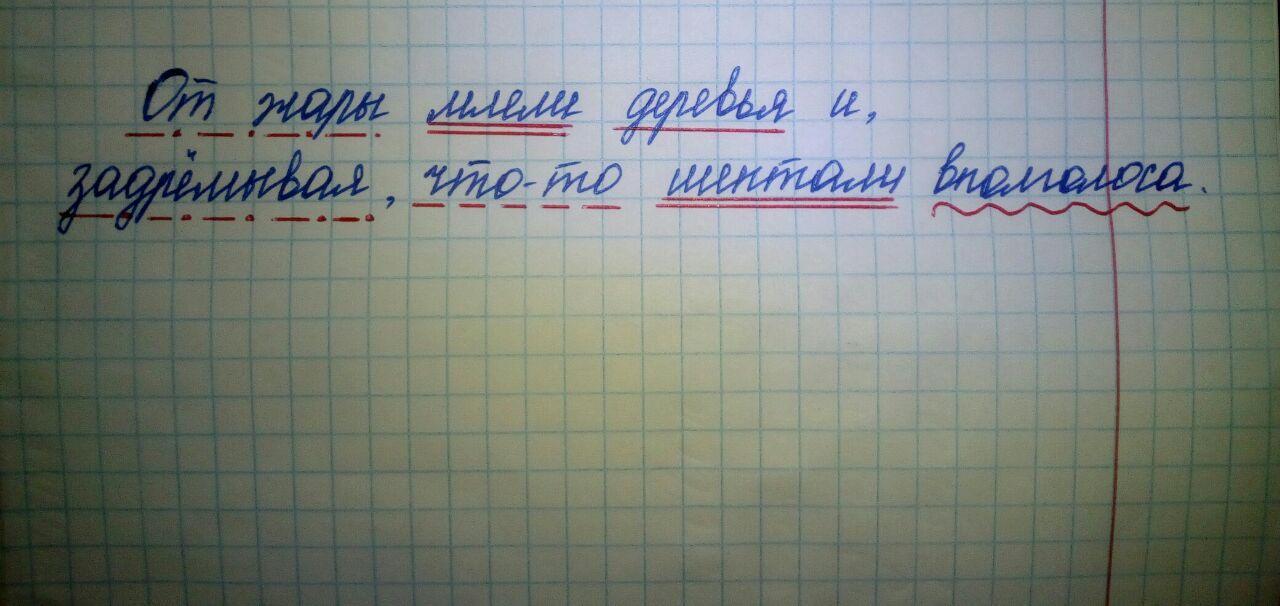 От жары млели деревья и,
задрёмывая, что-то шептали вполголоса.